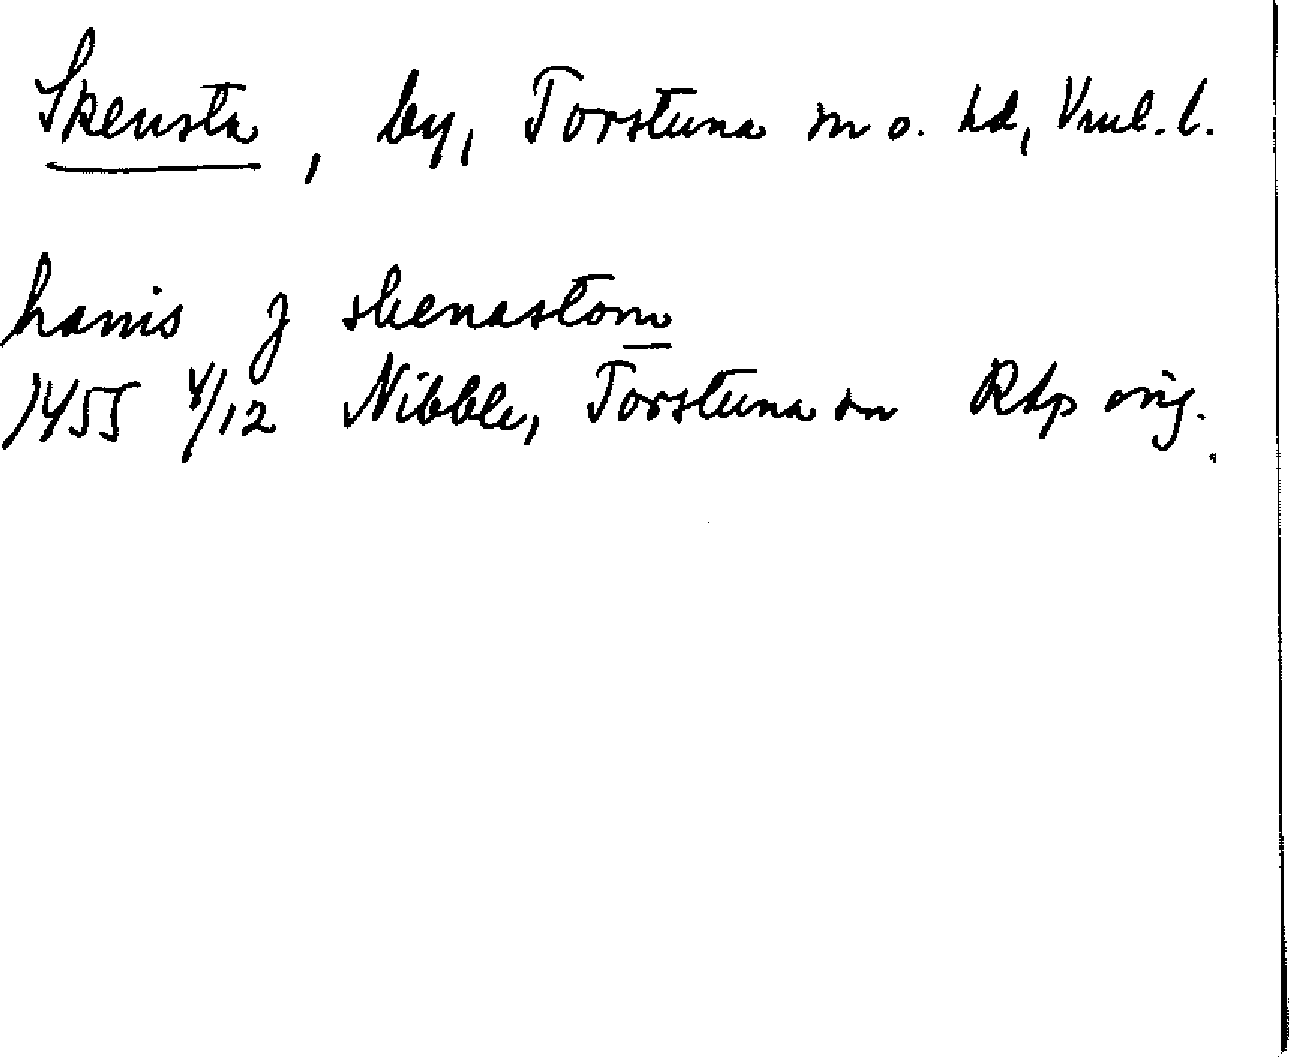 Skensta, by, Torstuna sn o. hd, Vml. l.
hannis j skenastom
1455 4/12 Nibble, Torstuna sn Rap orig.